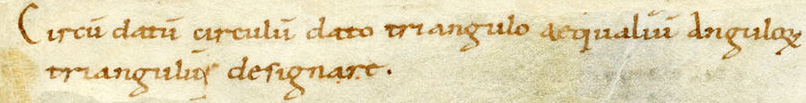 Circū datū circulū dato triangulo aequaliū Anguloꝝ
triangulū designare.